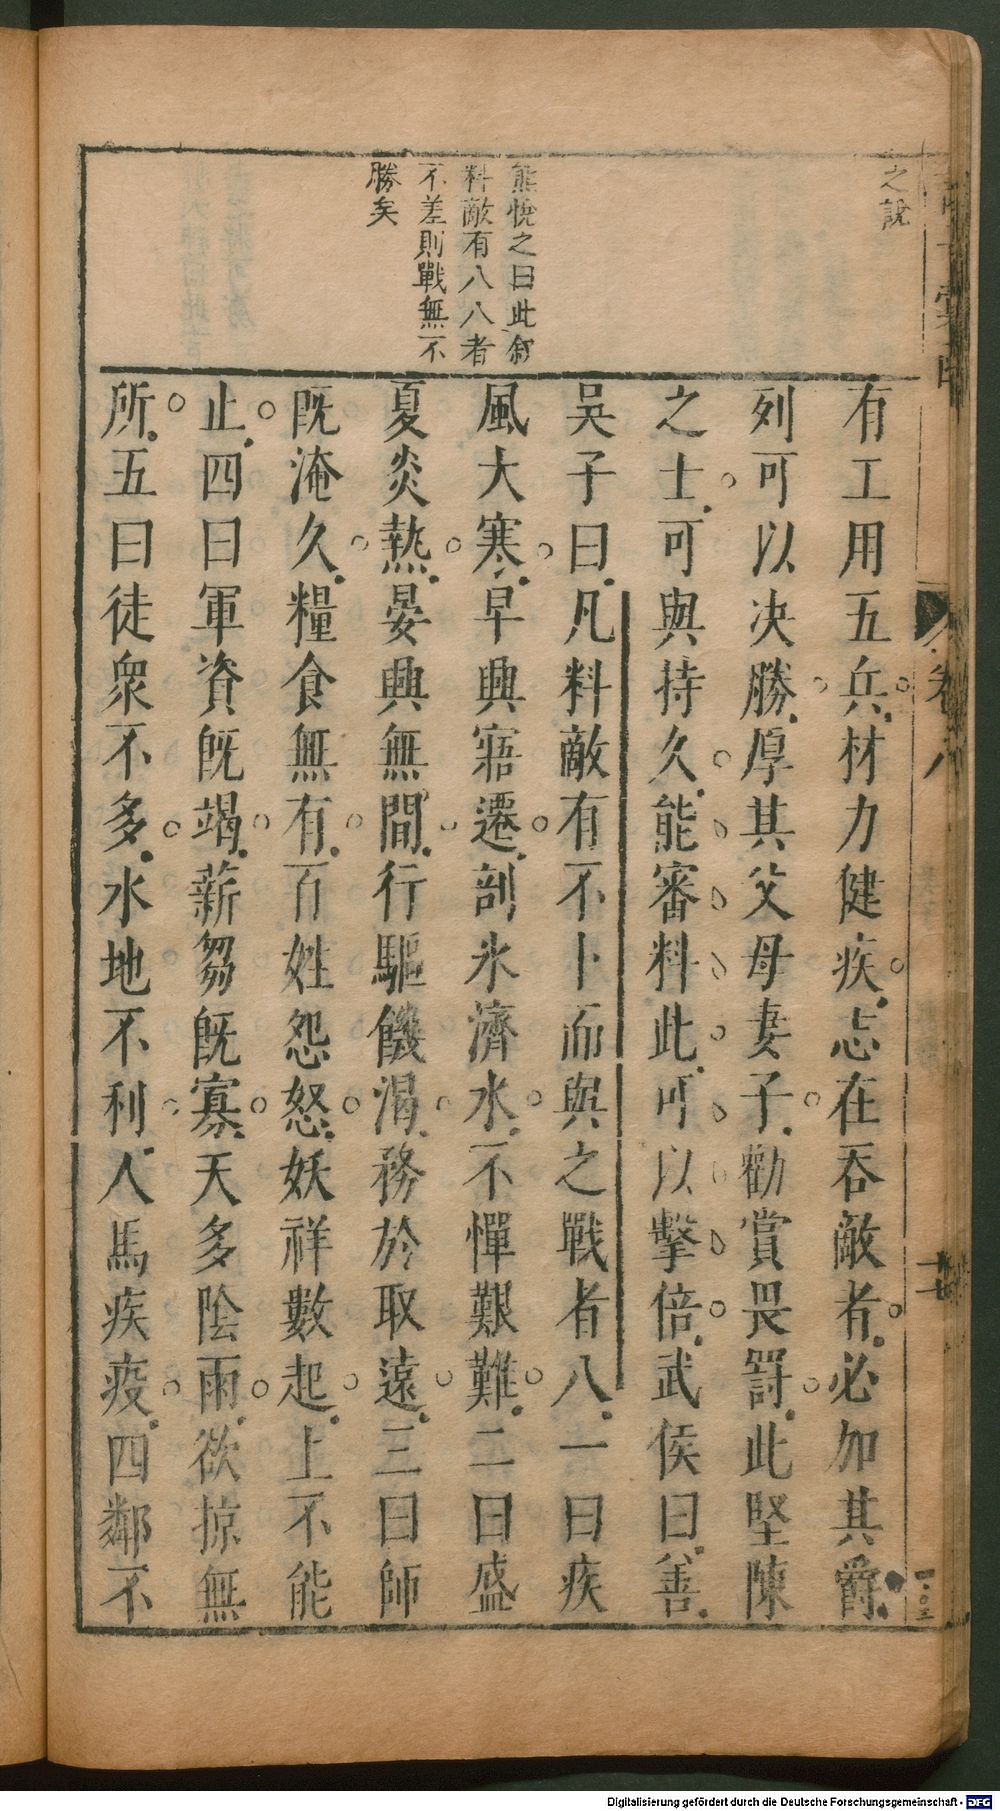 之說
熊悅之曰此敘
料敵有八八者
不差則戰無不
勝矣
有工用五兵材力健疾志在吞敵者必加其爵
列可以决勝厚其父母妻子勸賞畏罰此堅陳
之士可與持久能審料此可以擊倍武侯曰善
吳子曰凡料敵有不卜而與之戰者八一曰疾
風大寒早興寤遷剖氷濟水不憚艱難二曰盛
夏炎熱晏興無間行驅饑渴務於取遠三曰師
旣淹久糧食無有百姓怨怒妖祥數起上不能
止四曰軍資旣竭薪芻旣寡天多陰雨欲掠無
所五曰徒衆不多水地不利人馬疾疫四鄰不
卷八
十七
Digitalisierung gefördert durch die Deutsche Forschungsgemeinschaft - DFG